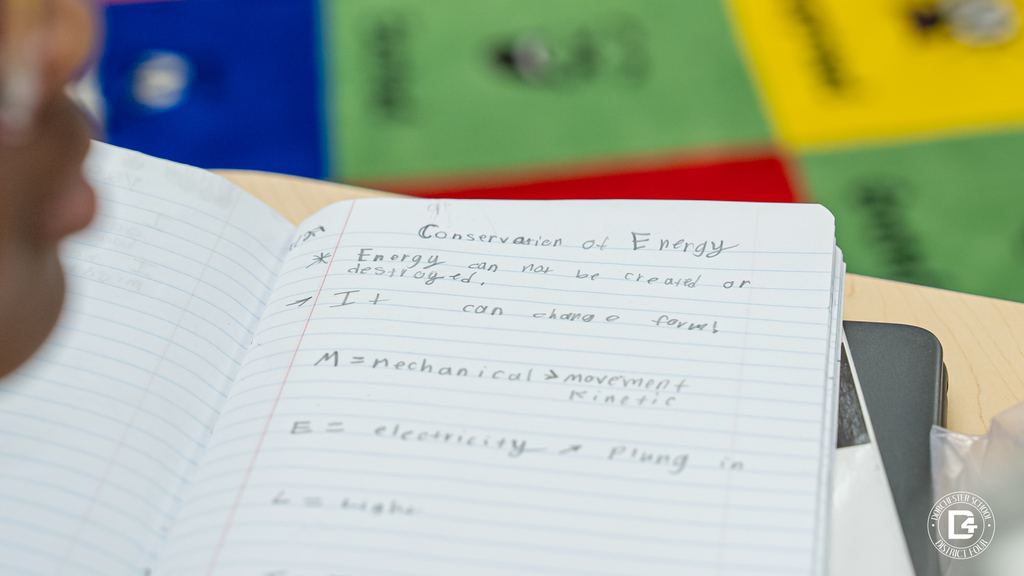 Conservation of Energy
* Energy can not be created or
destroyed.
→ It can change forms!
M = mechanical > movement
kinetic
E = electricity → Plung in
L = light
DORCHESTER SCHOOL
D4
DISTRICT FOUR